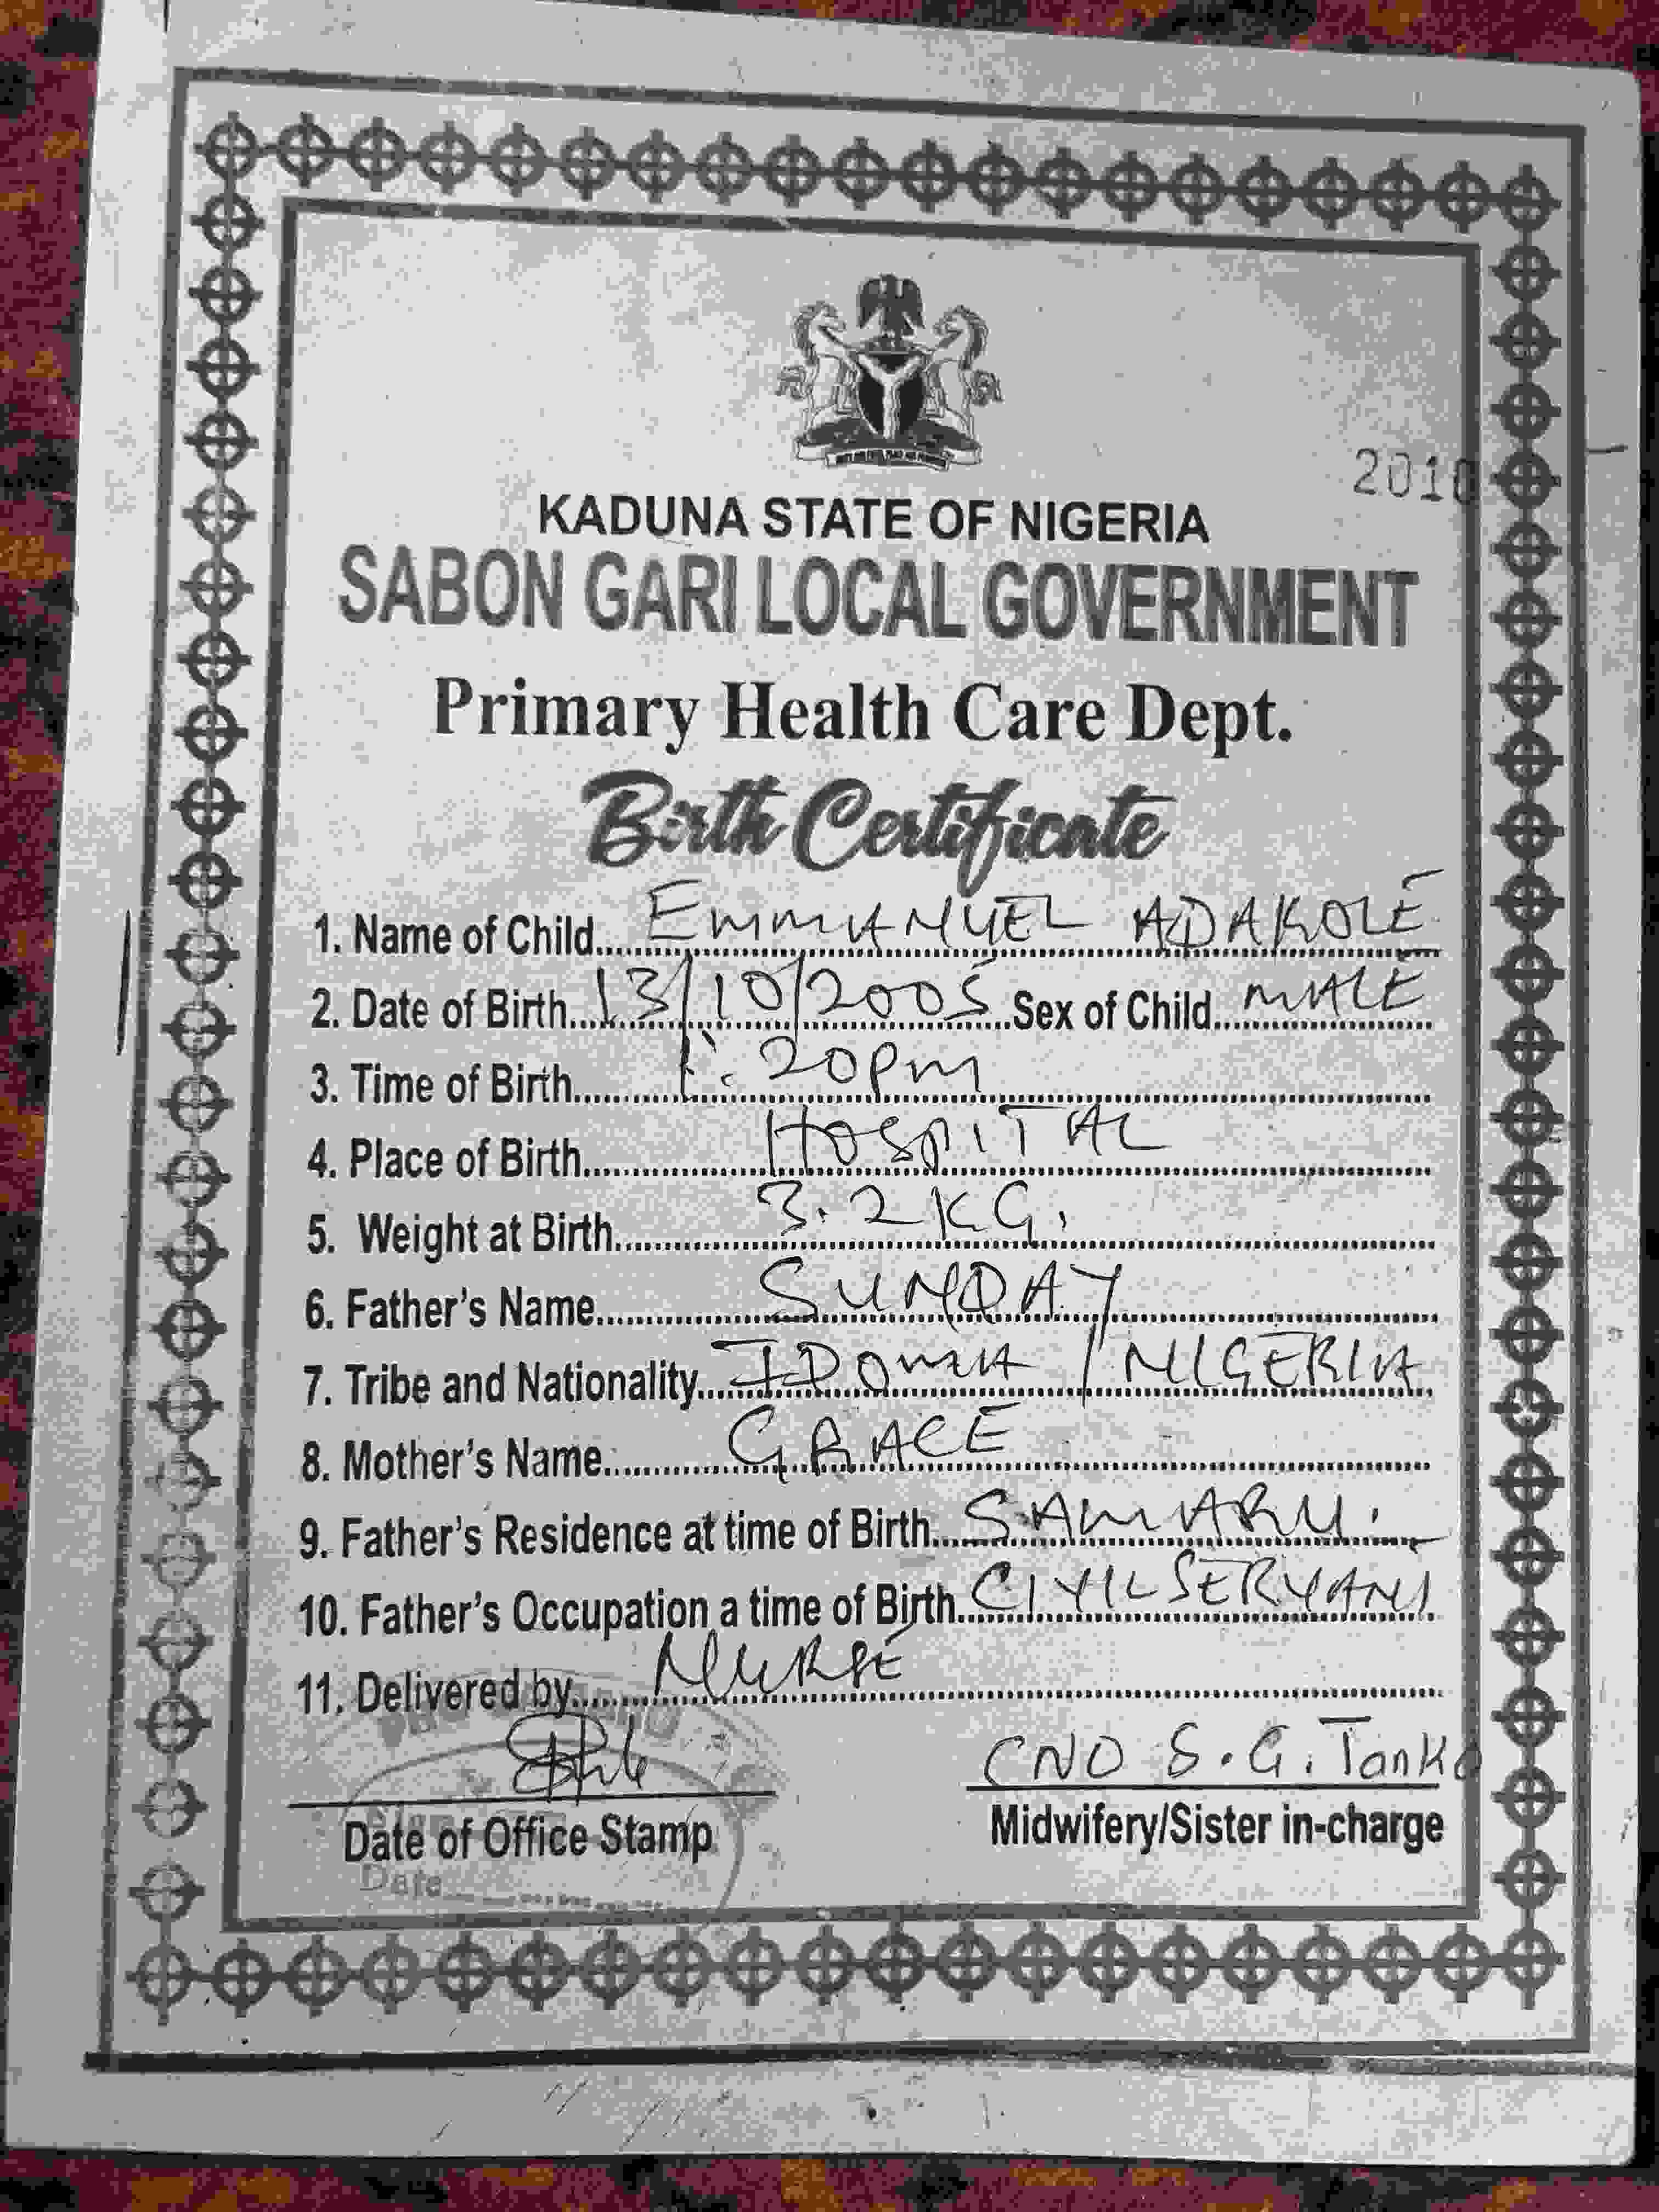 2010
KADUNA STATE OF NIGERIA
SABON GARI LOCAL GOVERNMENT
Primary Health Care Dept.
Birth Certificate
1. Name of Child....EMMANUEL ADAKOLE
2. Date of Birth...13/10/2005 Sex of Child...MALE
3. Time of Birth...1:20pm
4. Place of Birth...HOSPITAL
5. Weight at Birth...3.2KG.
6. Father's Name...SUNDAY
7. Tribe and Nationality...IDOMA / NIGERIA
8. Mother's Name...GRACE
9. Father's Residence at time of Birth...SAMARU.
10. Father's Occupation a time of Birth...CIVIL SERVANT
11. Delivered by...NURSE
CNO S. G. Tanko
Date of Office Stamp Midwifery/Sister in-charge
Date